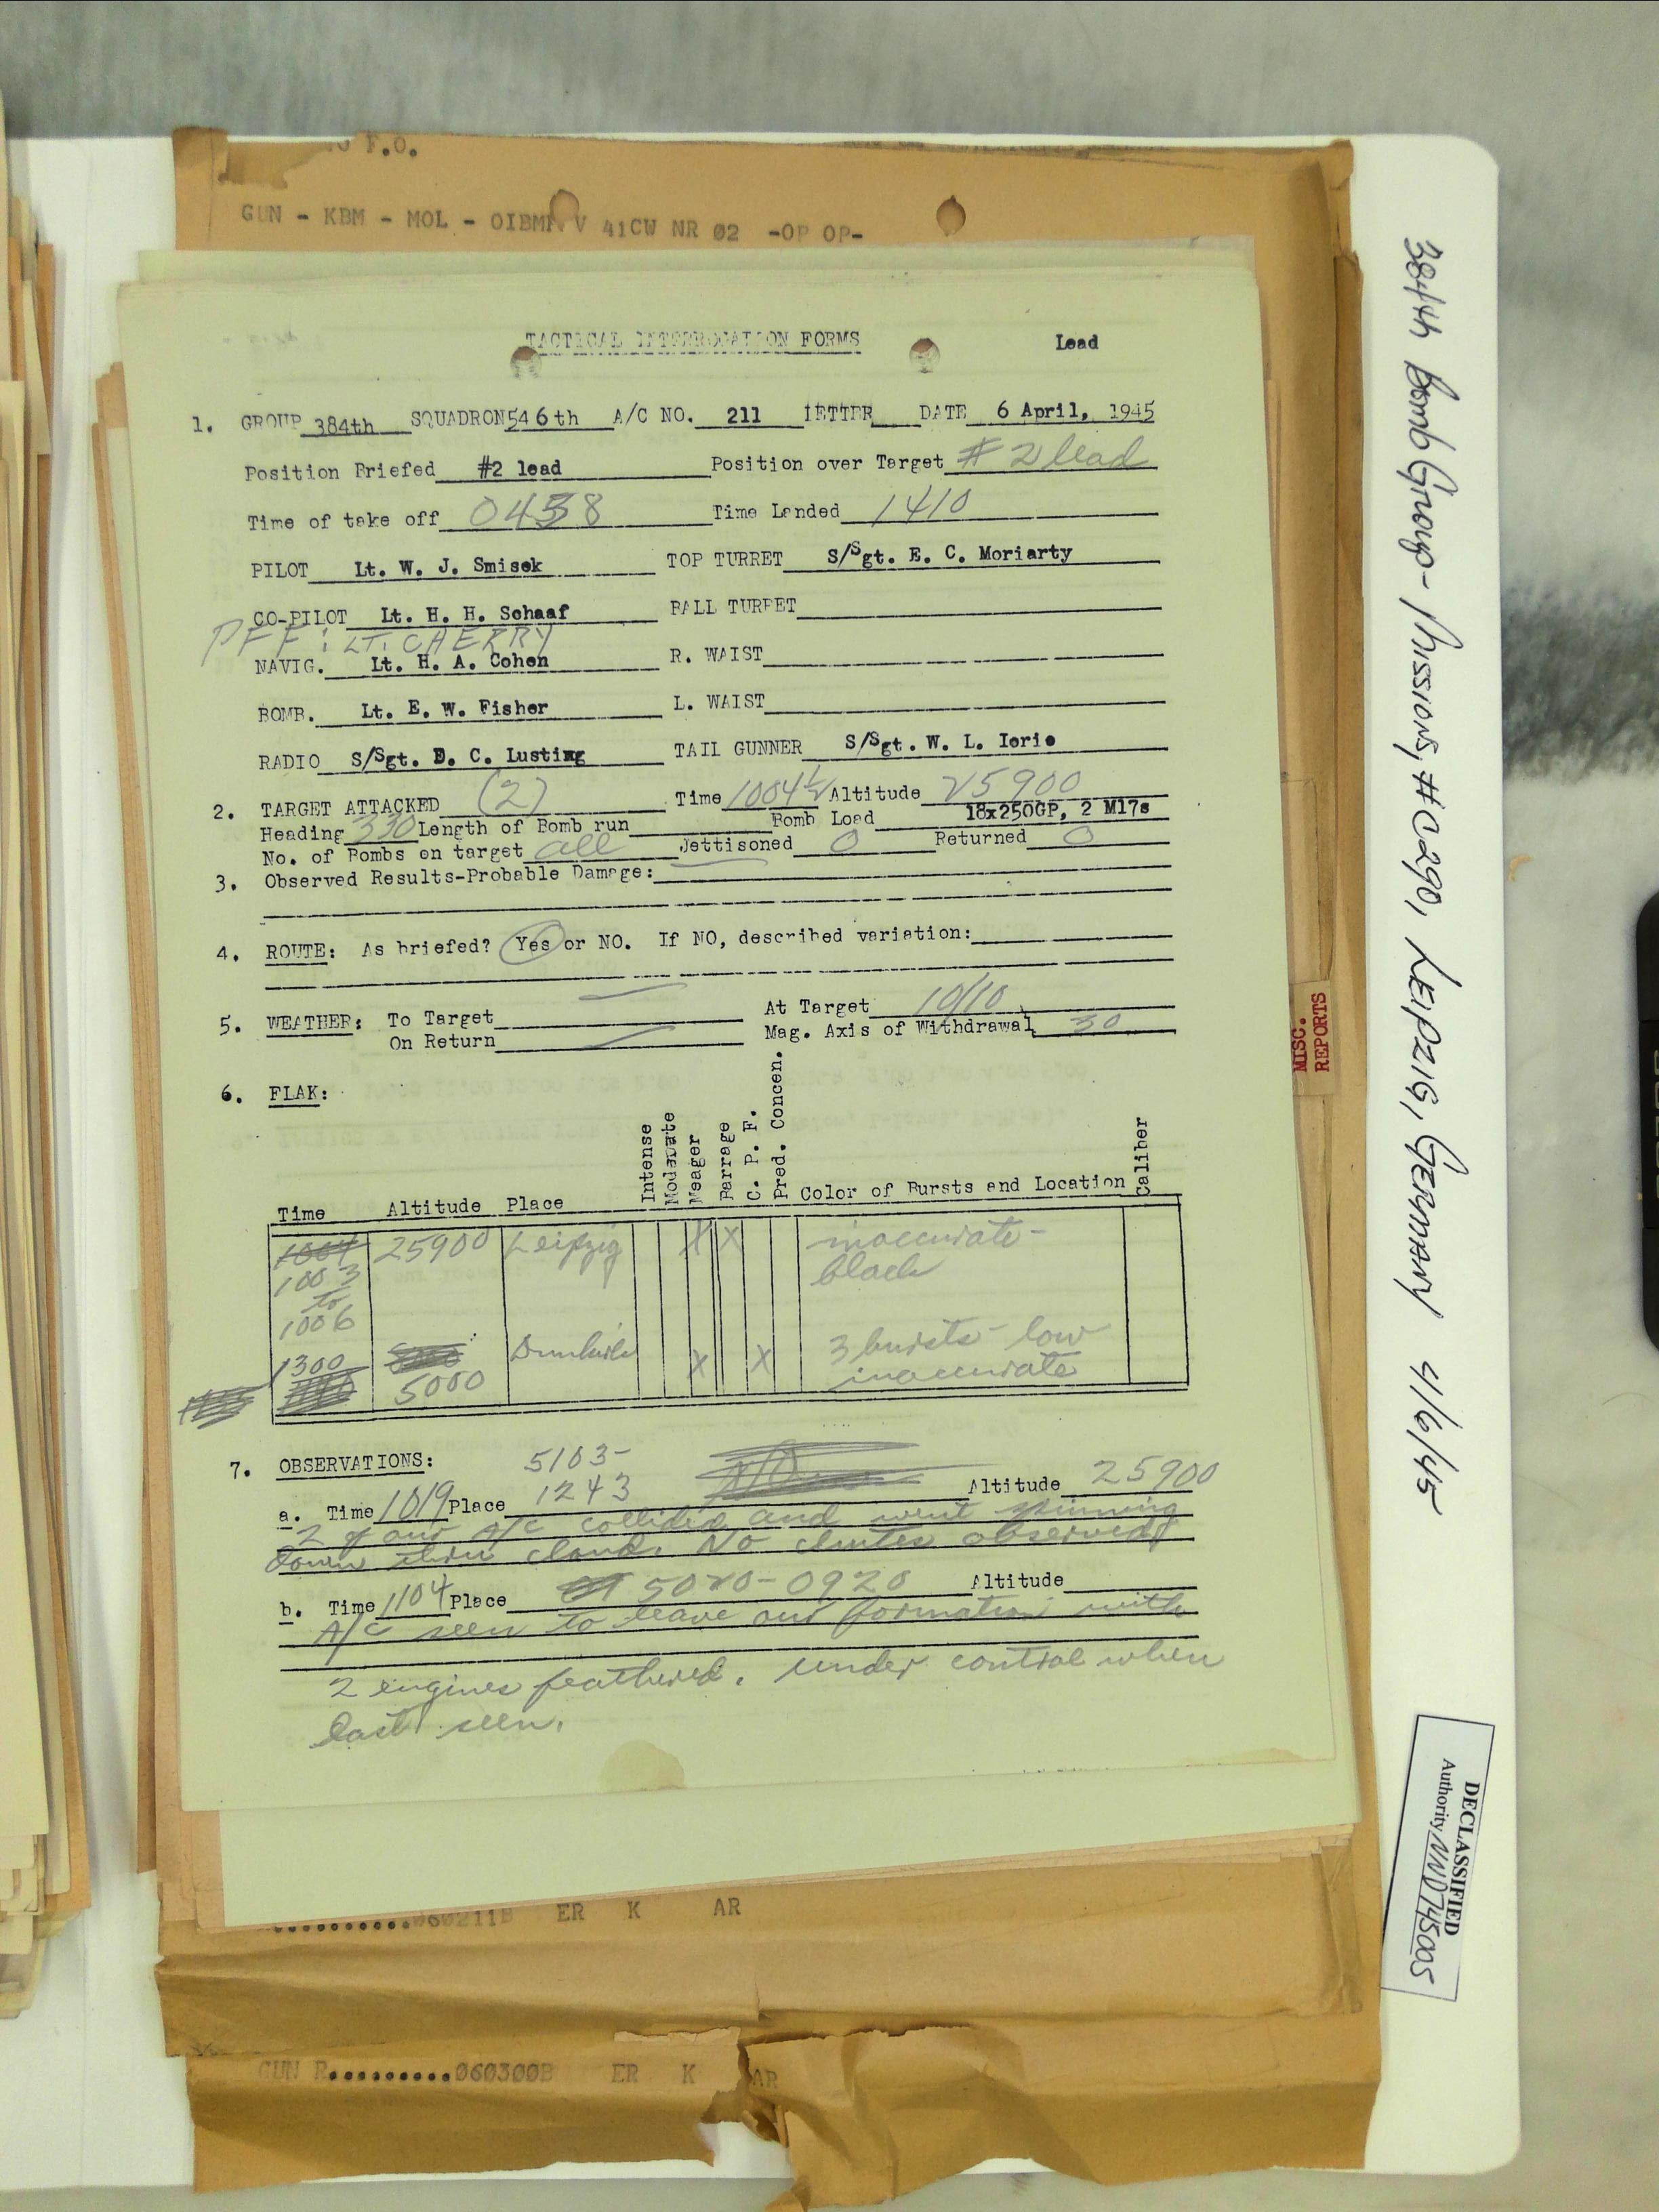 F.O.
GUN - KBM - MOL - OIBMR V 41CW NR 02 -OP OP-
TACTICAL INTERROGATION FORMS Lead
1. GROUP 384th SQUADRON 546th A/C NO. 211 LETTER DATE 6 April, 1945
Position Briefed #2 lead Position over Target #2 lead
Time of take off 0438 Time Landed 1410
PILOT Lt. W. J. Smisek TOP TURRET S/Sgt. E. C. Moriarty
CO-PILOT Lt. H. H. Schaaf BALL TURRET
PFF: LT. CHERRY
NAVIG. Lt. H. A. Cohen R. WAIST
BOMB. Lt. E. W. Fisher L. WAIST
RADIO S/Sgt. D. C. Lusting TAIL GUNNER S/Sgt. W. L. Iorio
2. TARGET ATTACKED (2) Time 1004½ Altitude 25900
Heading 330 Length of Bomb run Bomb Load 18x250GP, 2 M17s
No. of Bombs on target all Jettisoned 0 Returned 0
3. Observed Results-Probable Damage:
4. ROUTE: As briefed? Yes or NO. If NO, described variation:
5. WEATHER: To Target At Target 10/10
On Return Mag. Axis of Withdrawal 30
6. FLAK:
Time Altitude Place Intense Moderate Meager Barrage C. P. F. Pred. Concen. Color of Bursts and Location Caliber
1004 25900 Leipzig X X inaccurate-
1003 black
to
1006
1300 Dunkirk X X 3 bursts - low
5000 inaccurate
7. OBSERVATIONS: 5103-
a. Time 1019 Place 1243 Altitude 25900
2 of our A/C collided and went spinning
down thru cloud. No chutes observed
b. Time 1104 Place 5020-0920 Altitude
A/C seen to leave our formation with
2 engines feathered. under control when
last seen.
060211B ER K AR
GUN R..........060300B ER K AR
MISC.
REPORTS
384th Bomb Group - Missions, #0290, LEIPZIG, GERMANY 4/6/45
DECLASSIFIED
Authority NND745005